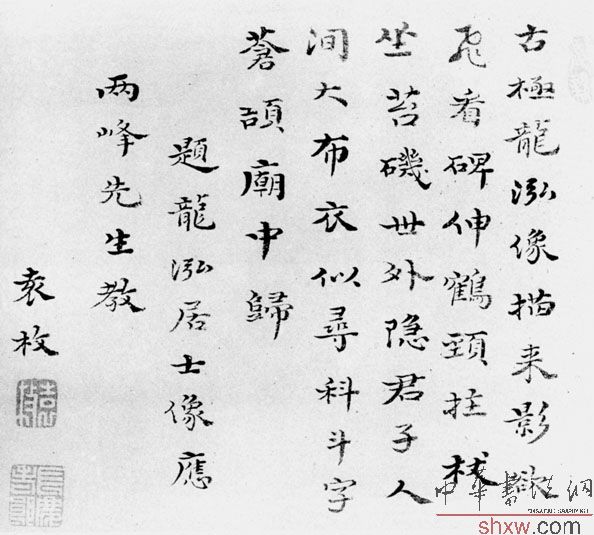 古極龍泓像描来影欲
飛看碑伸鶴頸拄杖
坐苔磯世外隐君子人
间大布衣似尋科斗字
蒼頡廟中歸
題龍泓居士像應
两峰先生教
袁枚
中华书法网
shxw.com